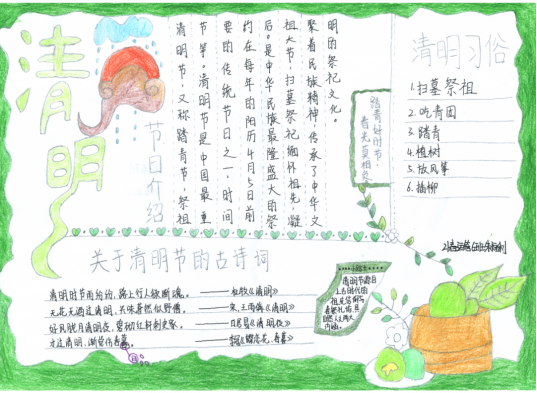 清明
节日介绍
清明节，又称踏青节，祭祖
节等。清明节是中国最重
要的传统节日之一，时间
约在每年的阳历4月5日前
后。是中华民族最隆盛大的祭
祖大节，扫墓祭祀、缅怀祖先，凝
聚着民族精神，传承了中华文
明的祭祀文化。
踏青好时节，
春光莫相负
清明习俗
1.扫墓祭祖
2.吃青团
3.踏青
4.植树
5.放风筝
6.插柳
关于清明节的古诗词
清明时节雨纷纷，路上行人欲断魂。——杜牧《清明》
无花无酒过清明，兴味萧然似野僧。——宋、王禹偁《清明》
好风胧月清明夜，碧砌红轩刺史家。——白居易《清明夜》
才过清明，渐觉伤春暮。
清明节源自
上古时代的